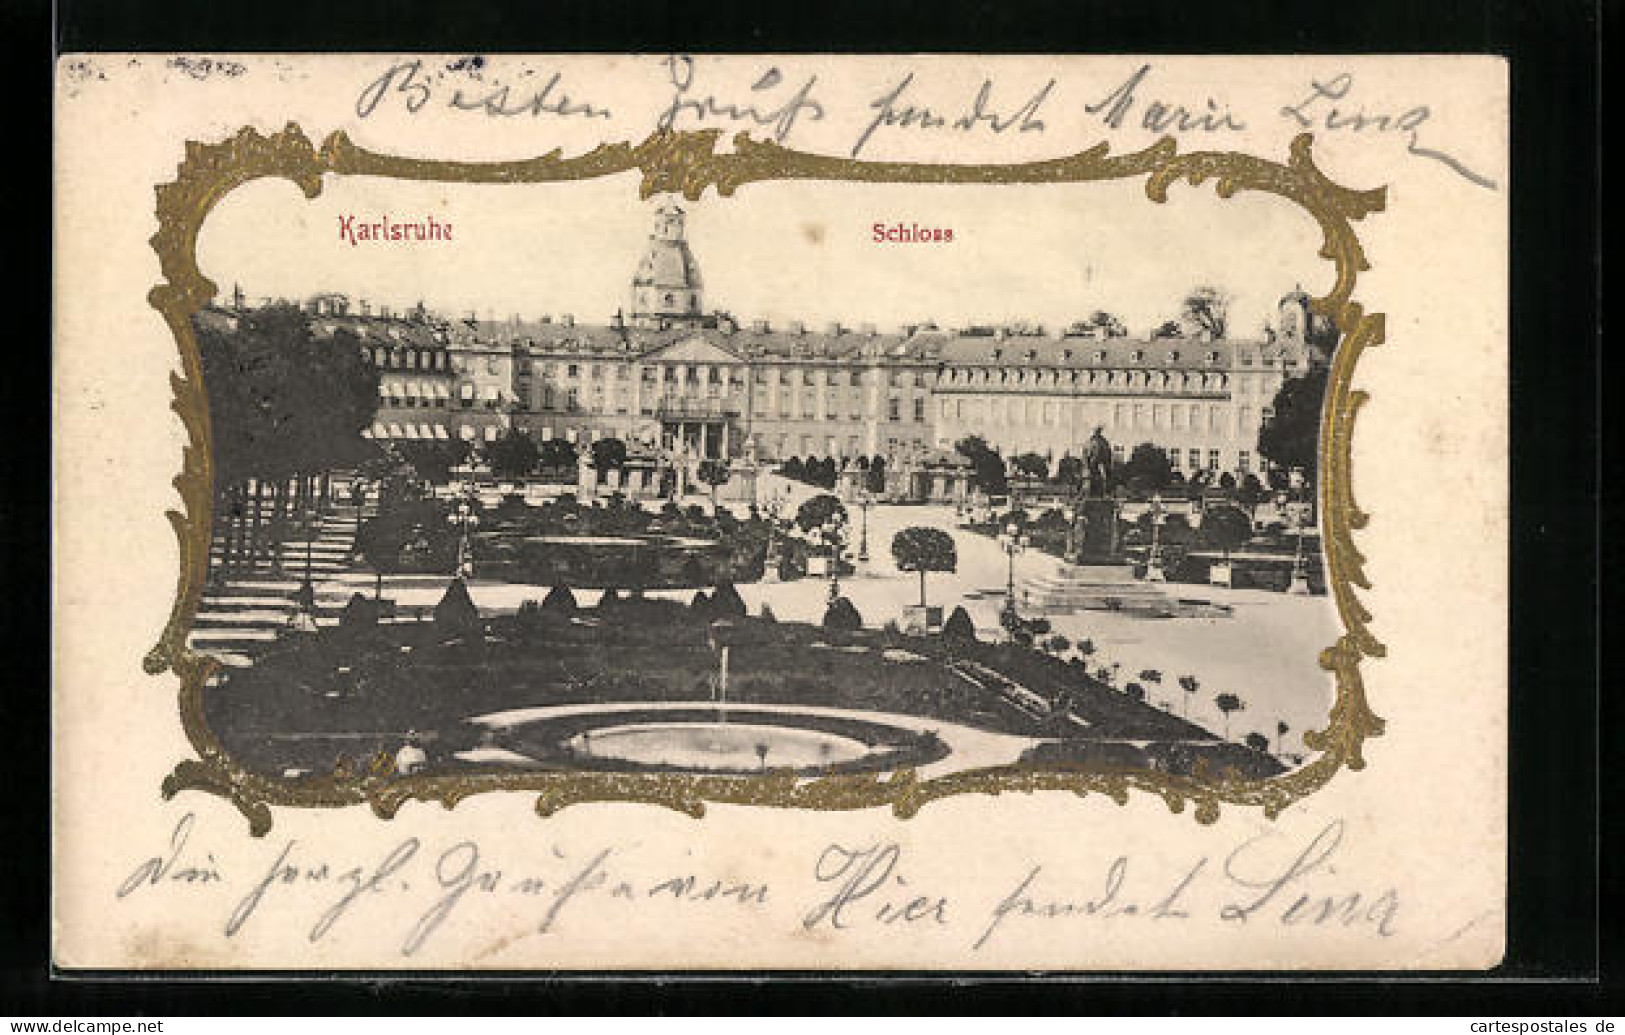 Besten Gruß sendet Marie Lina
Karlsruhe Schloss
Die herzl. Grüße von Hier sendet Lina
cartespostales de